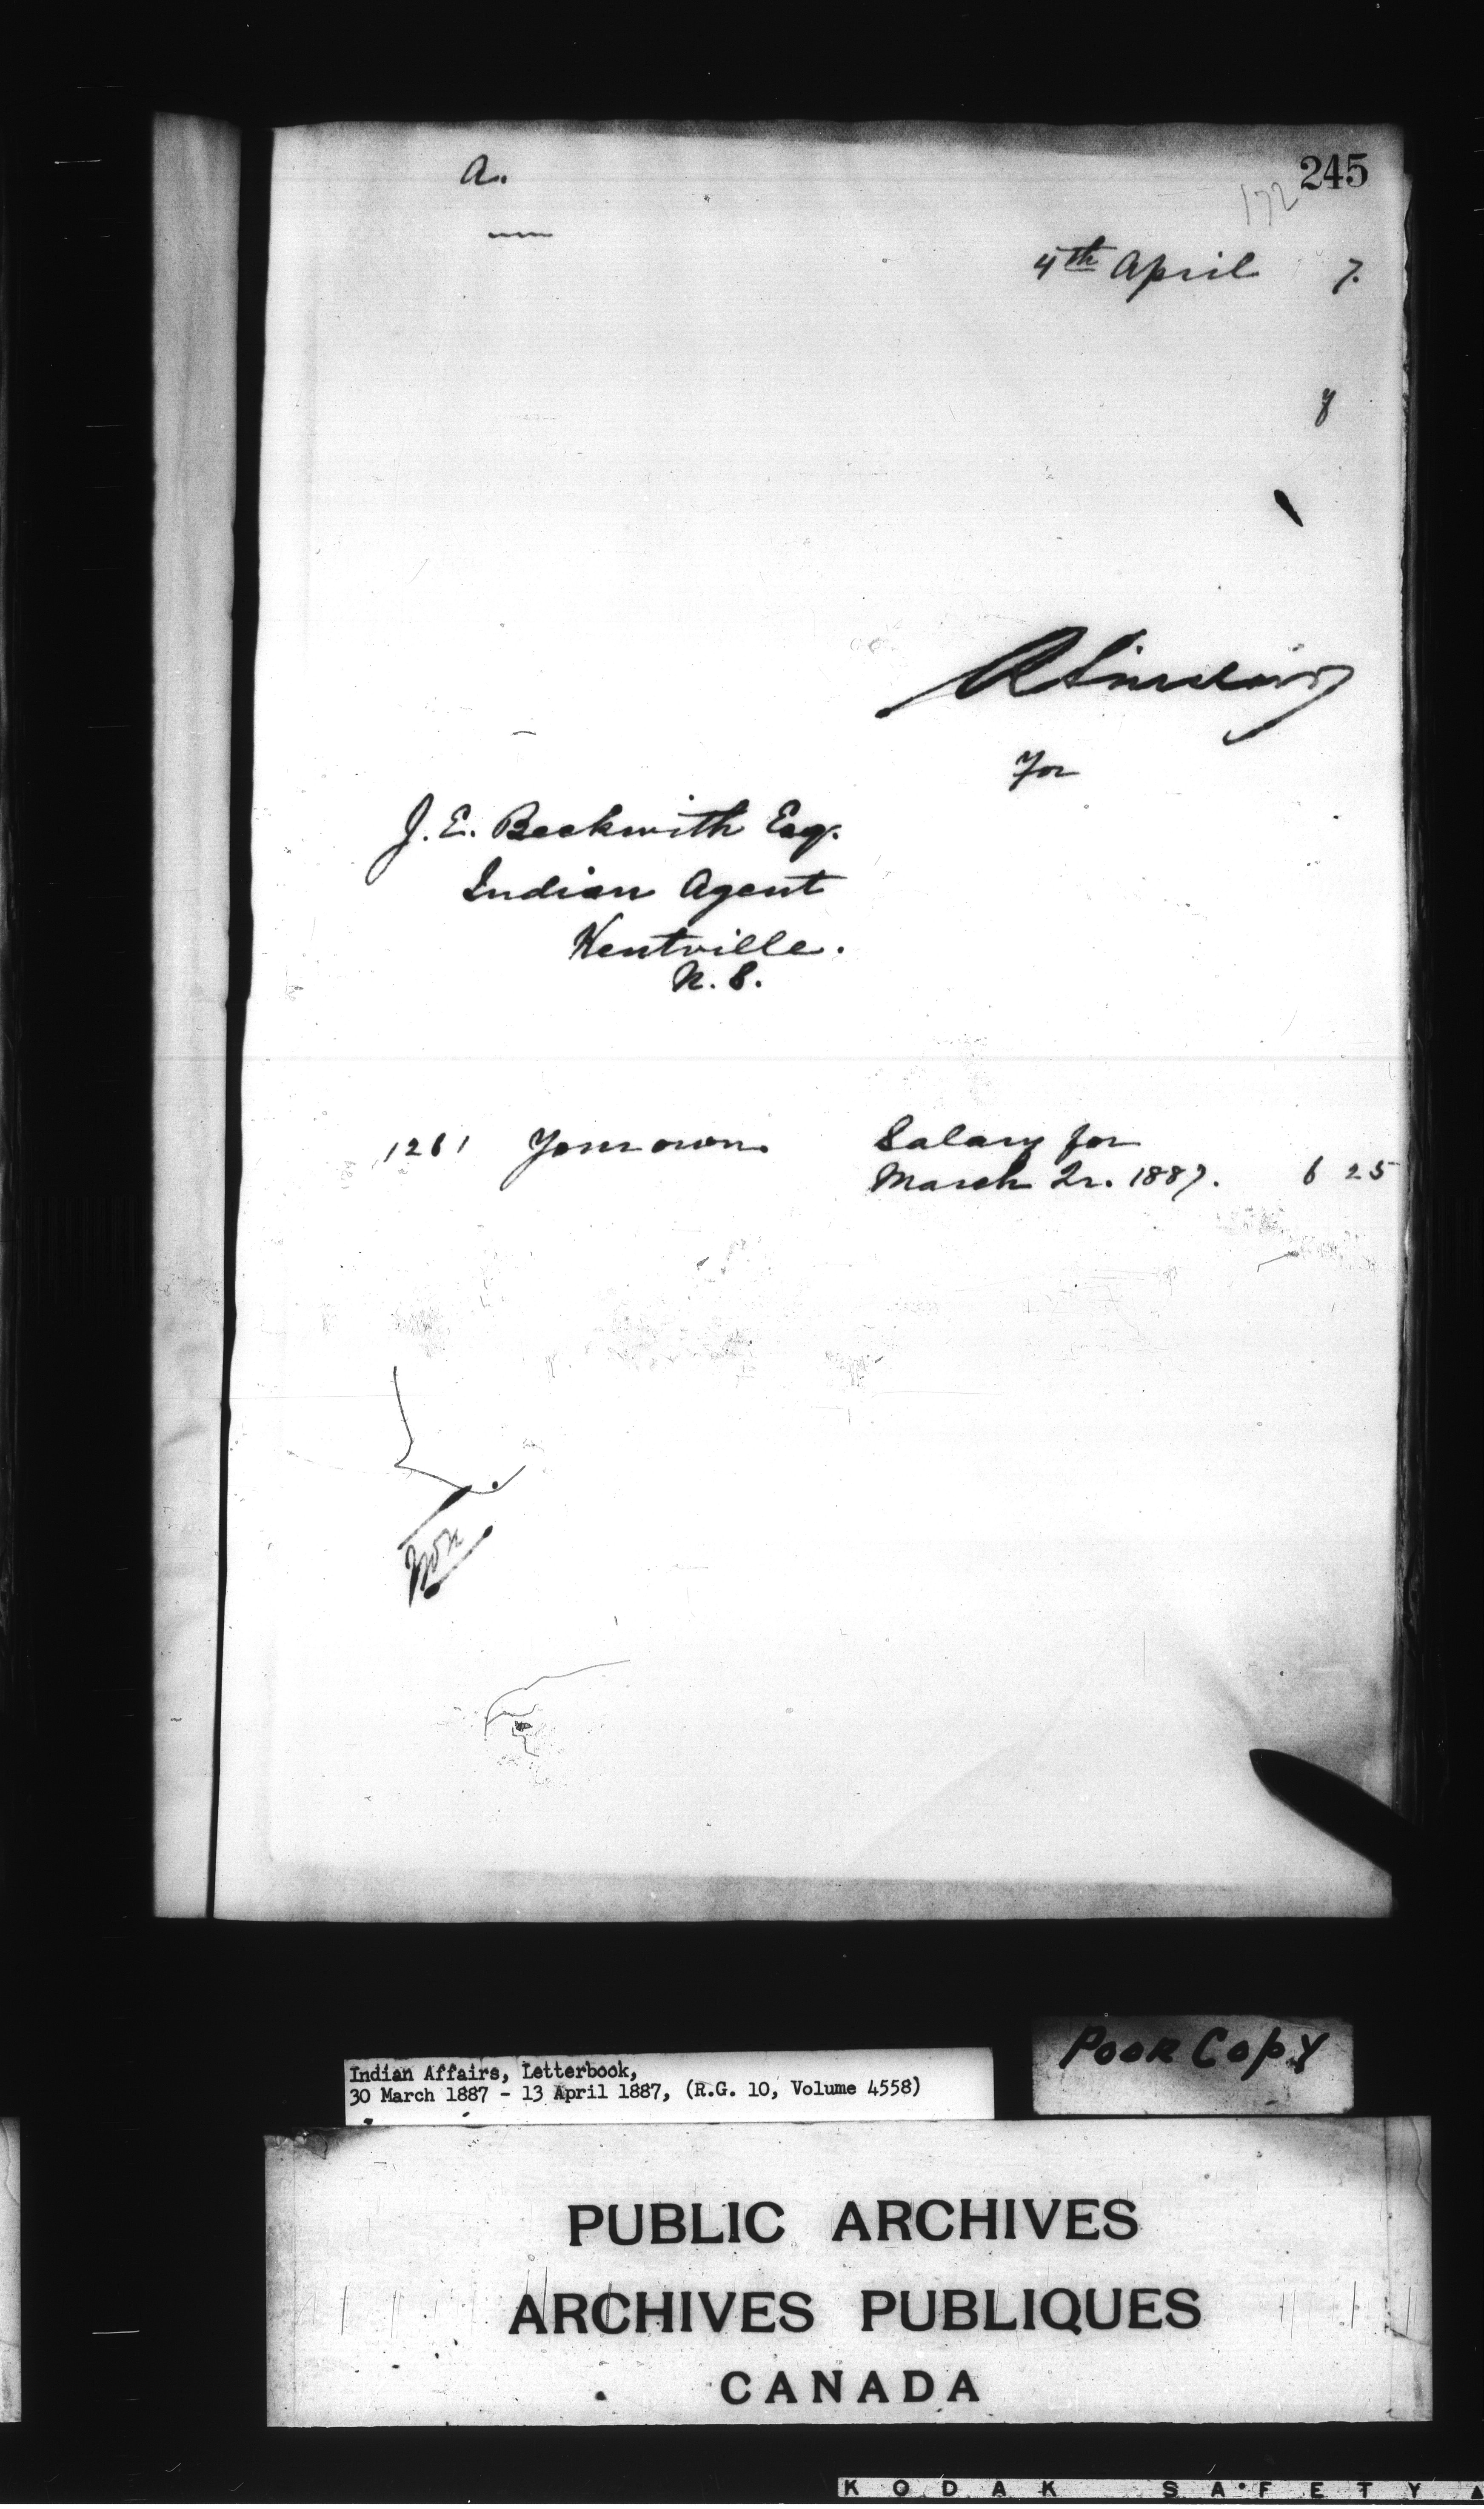 a.
245
172
4th April 7.
y
RSinclair
for
J. E. Beckwith Esq.
Indian Agent
Kentville.
N. S.
1261 Your own Salary for
March Qr. 1887. 6 25
Indian Affairs, Letterbook,
30 March 1887 - 13 April 1887, (R.G. 10, Volume 4558)
POOR COPY
PUBLIC ARCHIVES
ARCHIVES PUBLIQUES
CANADA
KODAK SAFETY